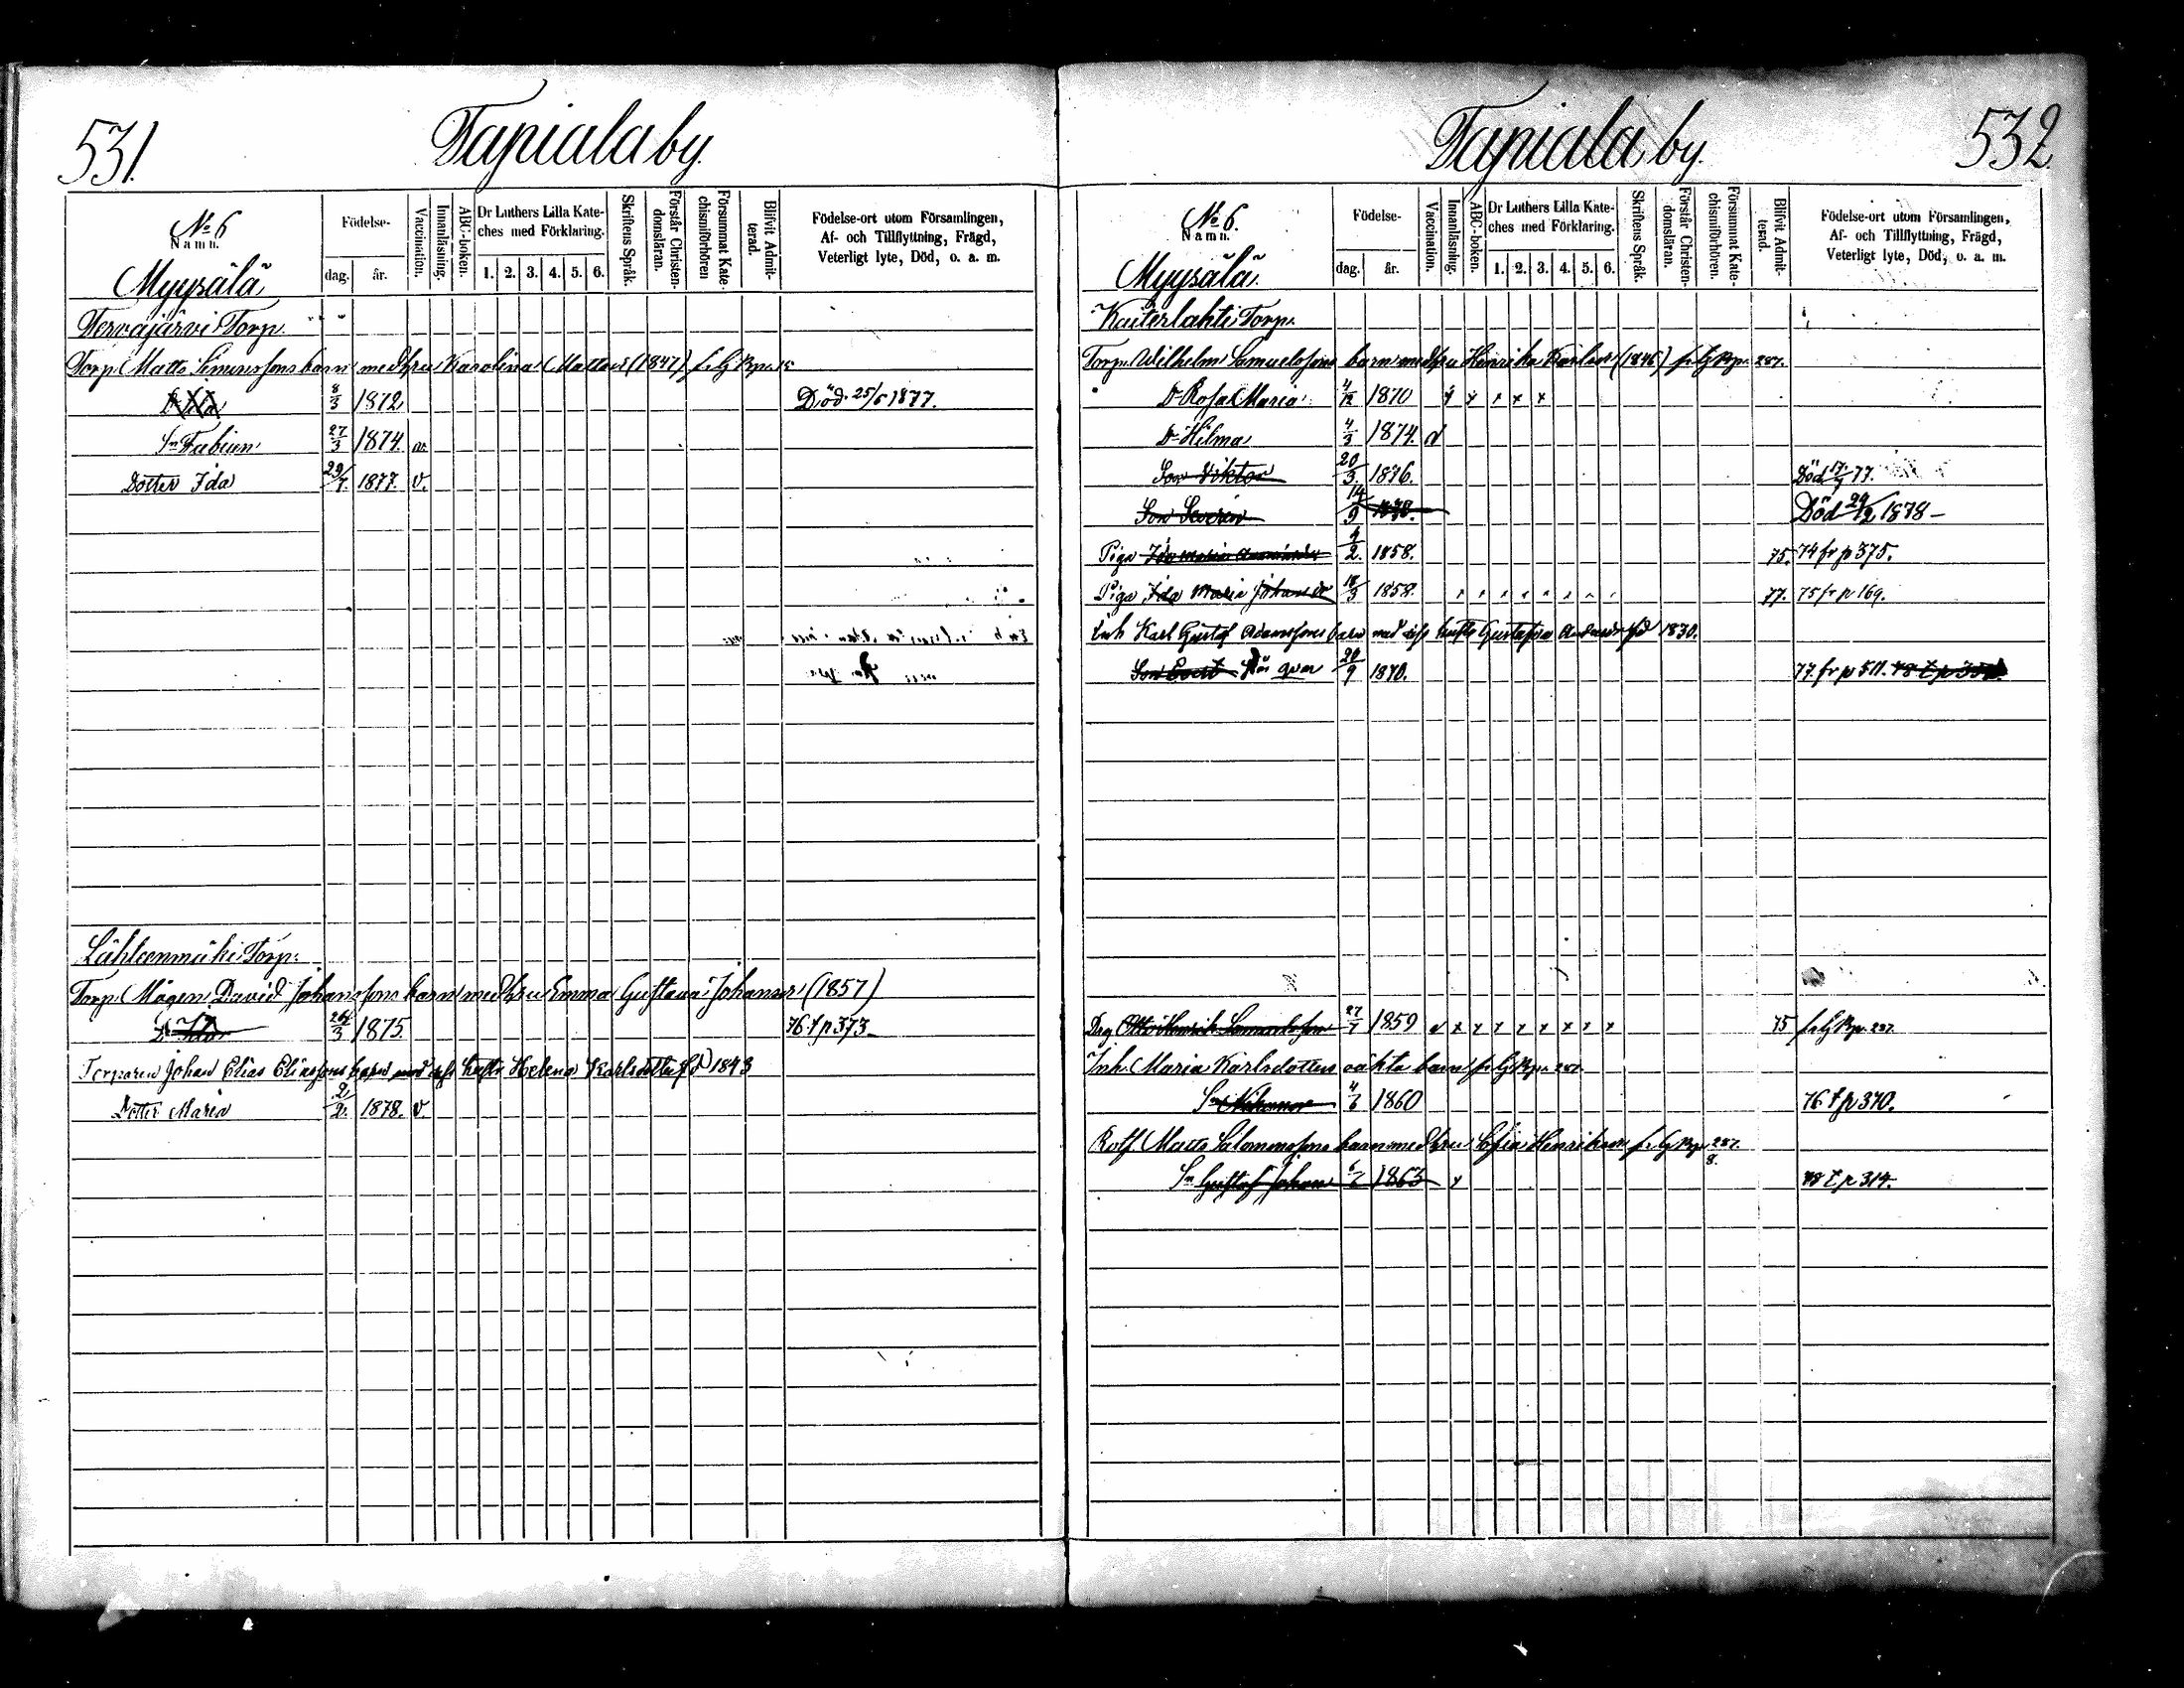 531.
Tapiala by.
No 6
Namn.
Myysälä
Födelse-
dag.
år.
Vaccination.
Innanläsning.
ABC-boken.
Dr Luthers Lilla Kate-
ches med Förklaring.
1. 2. 3. 4. 5. 6.
Skriftens Språk.
Förstår Christen-
domsläran.
Försummat Kate-
chismiförhören
Blifvit Admit-
terad.
Födelse-ort utom Församlingen,
Af- och Tillflyttning, Frägd,
Veterligt lyte, Död, o. a. m.
Tervajärvi Torp.
Torp. Matts Simonssons barn med hru Karolina Mattsdr (1847) fr. G. Kp.
D. Ida 8/3 1872 Död 25/6 1877.
Sn Fabian 27/3 1874. v.
Dotter Ida 29/7. 1877. v.
Lähteenmäki Torp.
Torp. Mågen David Johanssons barn med hru Emma Gustava Johansdr (1857)
26/3 1875. 76 t p 373
Torparen Johan Elias Eliassons barn med dess hustru Helena Karlsdotter fd 1843
Dotter Maria 2/2. 1878. v.
532
Tapiala by.
No 6.
Namn.
Myysälä.
Födelse-
dag.
år.
Vaccination.
Innanläsning.
ABC-boken.
Dr Luthers Lilla Kate-
ches med Förklaring.
1. 2. 3. 4. 5. 6.
Skriftens Språk.
Förstår Christen-
domsläran.
Försummat Kate-
chismiförhören.
Blifvit Admit-
terad.
Födelse-ort utom Församlingen,
Af- och Tillflyttning, Frägd,
Veterligt lyte, Död, o. a. m.
Kuiterlahti Torp.
Torp. Wilhelm Samuelssons barn med hru Henrika Karlsdr (1846) fr G Kp. 287.
D. Rosa Maria 4/12 1870 x x x x x
Dr Hilma 4/3 1874. v
Son Viktor 20/3. 1876. Död 17/7 77.
Son Severin 14/9 1878. Död 29/12 1878 -
Piga Ida Maria 4/2. 1858. 75. 74 fr p 375.
Piga Ida Maria Johansdr 18/3 1858. 77. 75 fr p 169.
Inh Karl Gustaf Adamssons barn med dess hustru Gustafva Andersdr fd 1830.
Son Evert Står qvar 20/9 1870. 77. fr p 511. 78 t p
Drg Otto Henrik Samuelsson 27/7 1859 v x x x x x x x x 75 fr G Kp. 287.
Inh. Maria Karlsdotters oäkta barn fr G Kp. 287.
Sn Nikanor 4/6 1860 76 t p 370.
Rotf. Matts Salomonssons barn med hru Sofia Henriksdr fr G Kp. 287.
8.
Sn Gustaf Johan 6/6 1863 x 78 t p 314.